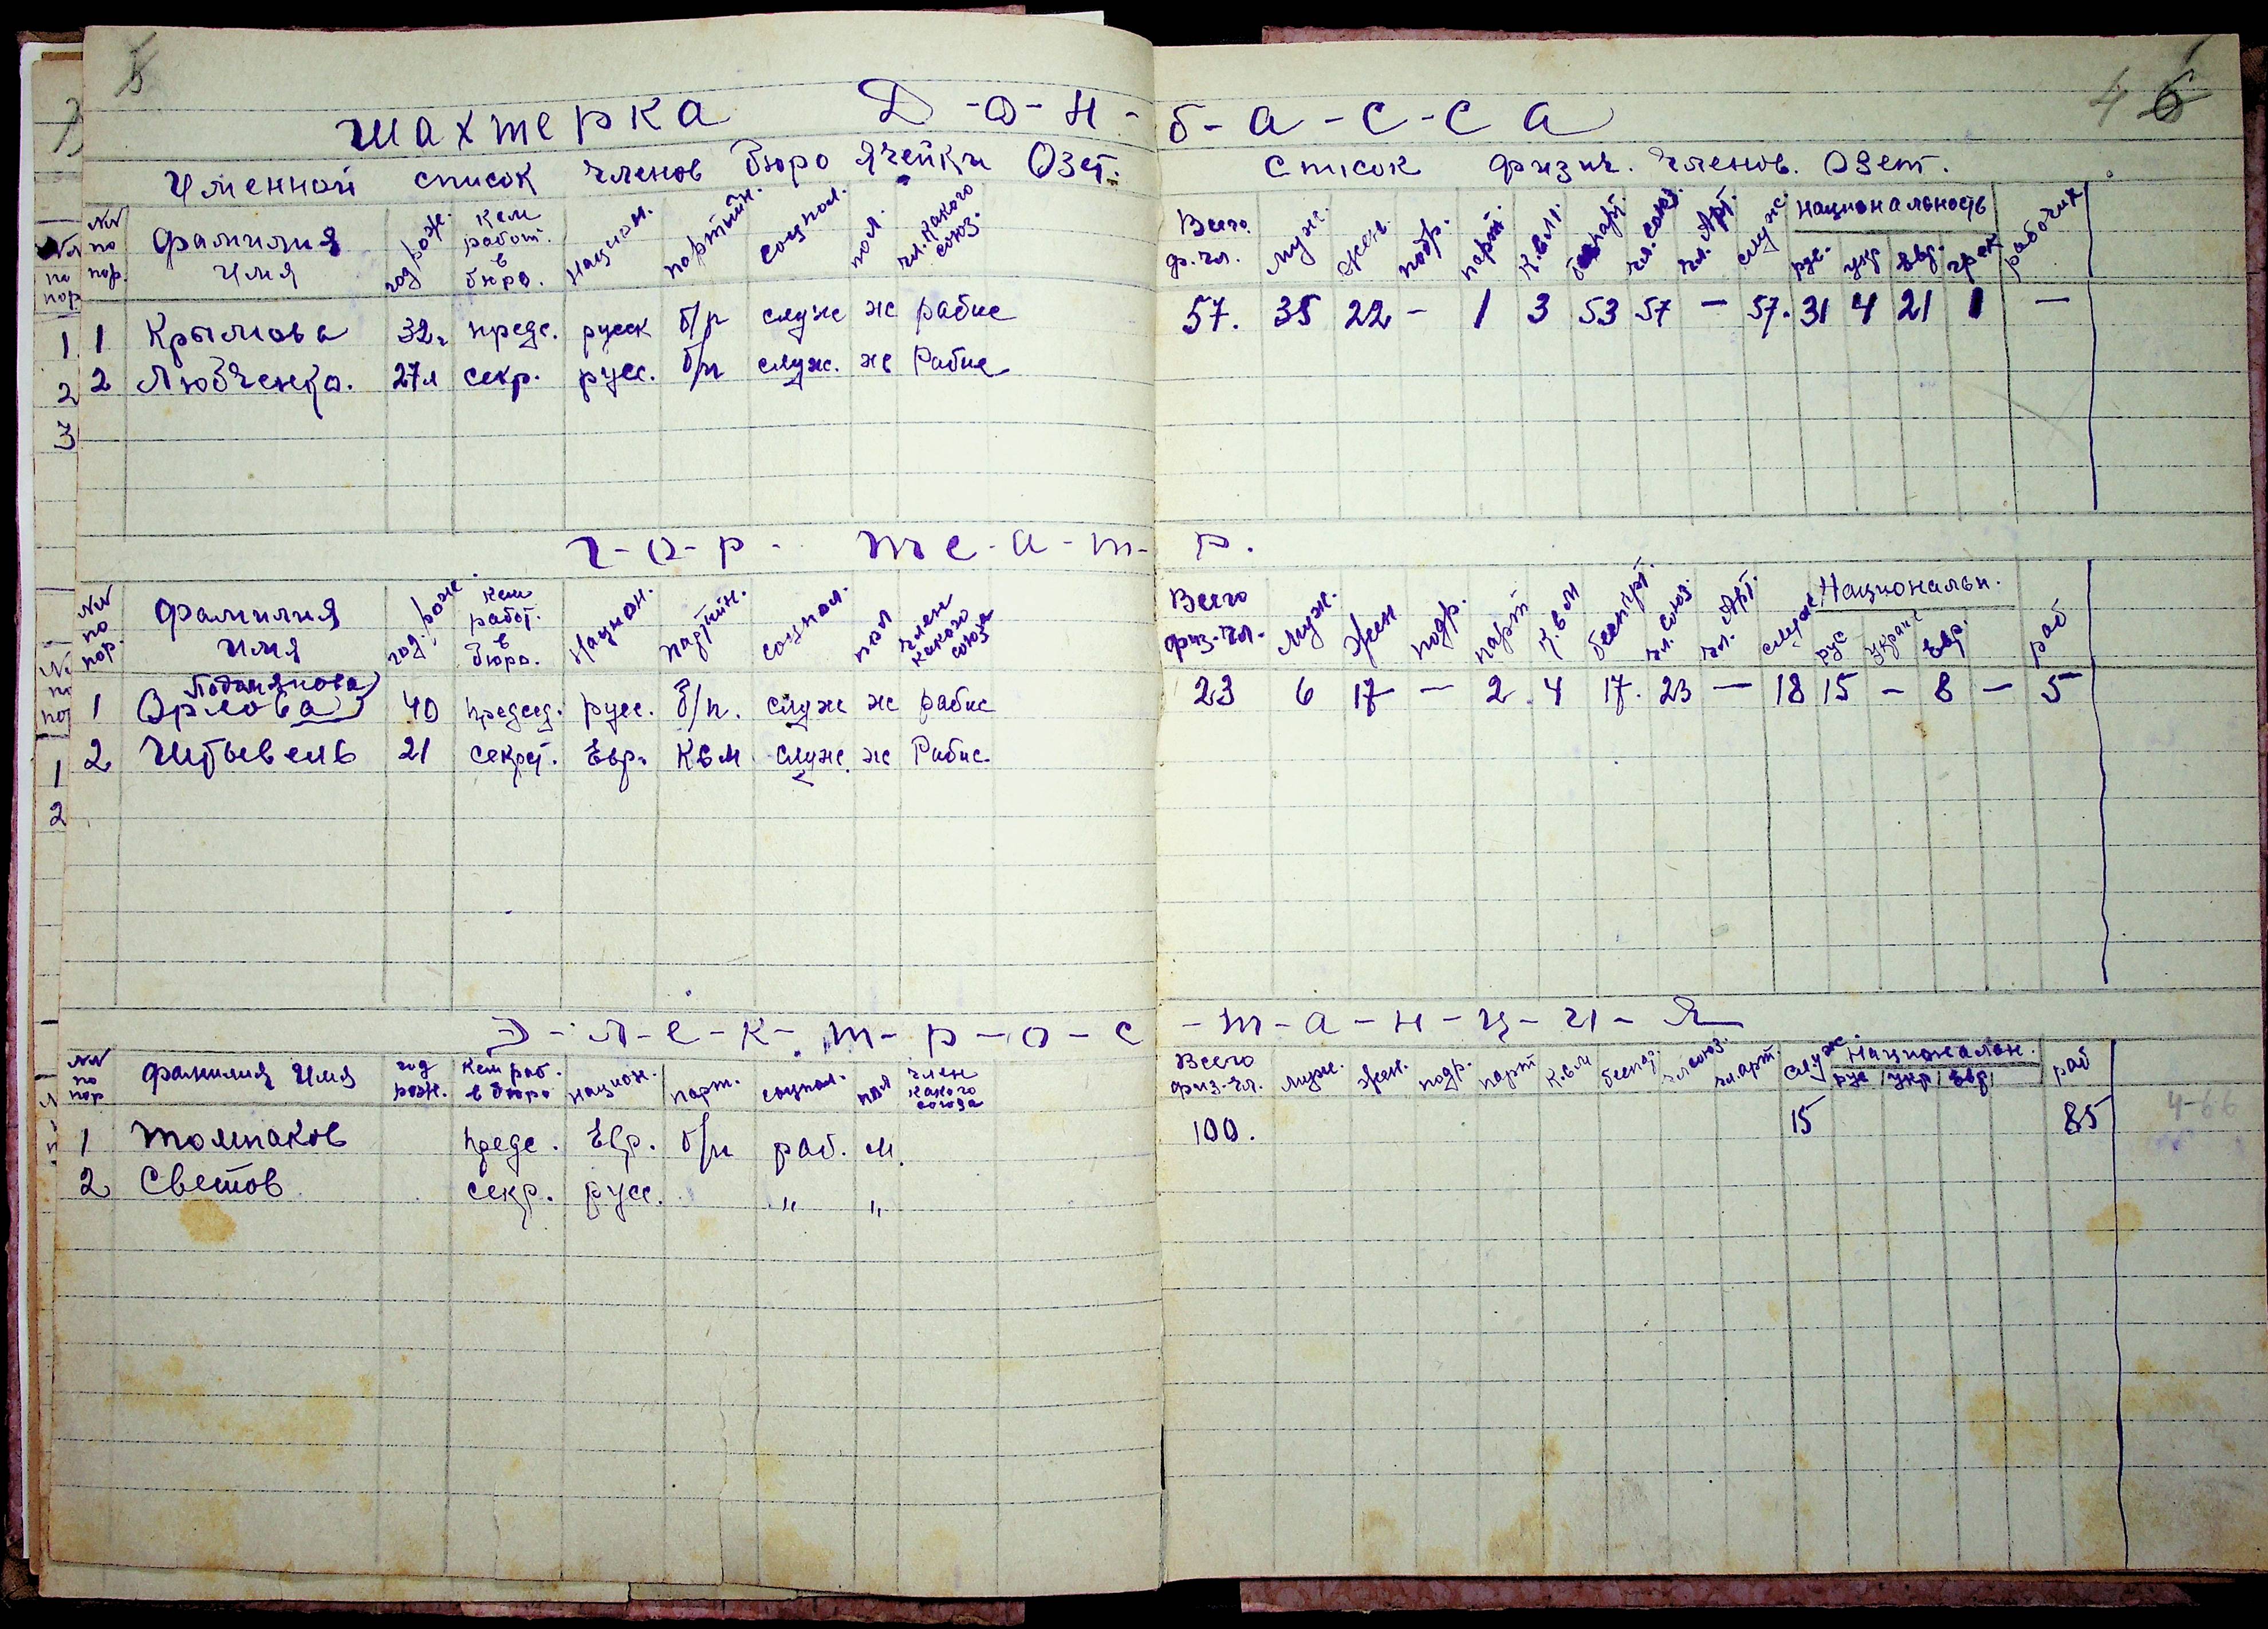 5 4 6
шахтерка Д-о-н-б-а-с-с а
Именной список членов бюро ячейки Озет.
Список физич. членов. Озет.
№№ по пор. фамилия имя год рож. кем работ. в бюро. национ. партийн. соцпол. пол. чл. какого союз.
Всего ф.чл. муж. жен. подр. парт. К.в.М. беспарт. чл. союз. чл. Арт. служ. национальность рус. укр евр. грек рабочих
1 Крымова 32г предс. русск б/п служ ж рабис
57. 35 22 – 1 3 53 57 – 57. 31 4 21 1 –
2 Любченко. 27л секр. русс. б/п служ. ж Рабис
г-о-р- т е-а-т-р.
№№ по пор. фамилия имя год. рож. кем работ. в бюро. национ. партийн. соцпол. пол член какого союза
Всего физ-чл. муж. жен. подр. парт К.в.м беспарт. чл. союз. чл. Арт. служ Национальн. рус украи евр. раб
1 Орлова 40 председ. русс. б/п. служ ж рабис
23 6 17 – 2 4 17. 23 – 18 15 – 8 – 5
2 Штывель 21 секрет. Евр. Квм служ. ж Рабис.
Э-л-е-к-т-р-о-с-т-а-н-ц-и-я
№№ по пор фамилия имя год рож. кем раб. в бюро национ. парт. соцпол. пол член какого союза
Всего физ-чл. муж. жен. подр. парт К.в.м беспар. чл союз. чл. арт. служ Национальн. рус укр евр раб
1 Томпаков предс. Евр. б/п раб. м.
100. 15 85
2 Светов секр. русс. " "
4-66